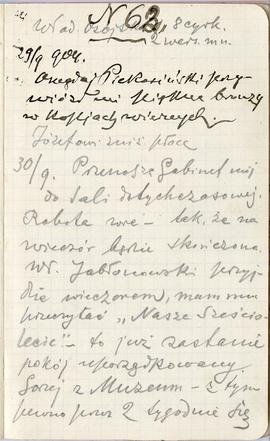 N 63,
Wład. 8 cyrk.
2 wers. mn.
29/9 904.
Onegdaj Piekosiński przy-
wiózł mi piękne bronzy
w kopjach wiernych.
Józefowi zniż płacę
30/9. Przenoszę Gabinet mój
do Sali dotychczasowej.
Robota wre – tak, że na
wieczór będzie skończona.
Wł. Jabłonowski przyj-
dzie wieczorem, mam mu
przeczytać „Nasze Sześcio-
lecie" – to już zastanie
pokój uporządkowany
Gorzej z Muzeum – z tym
pewno przez 2 tygodnie się